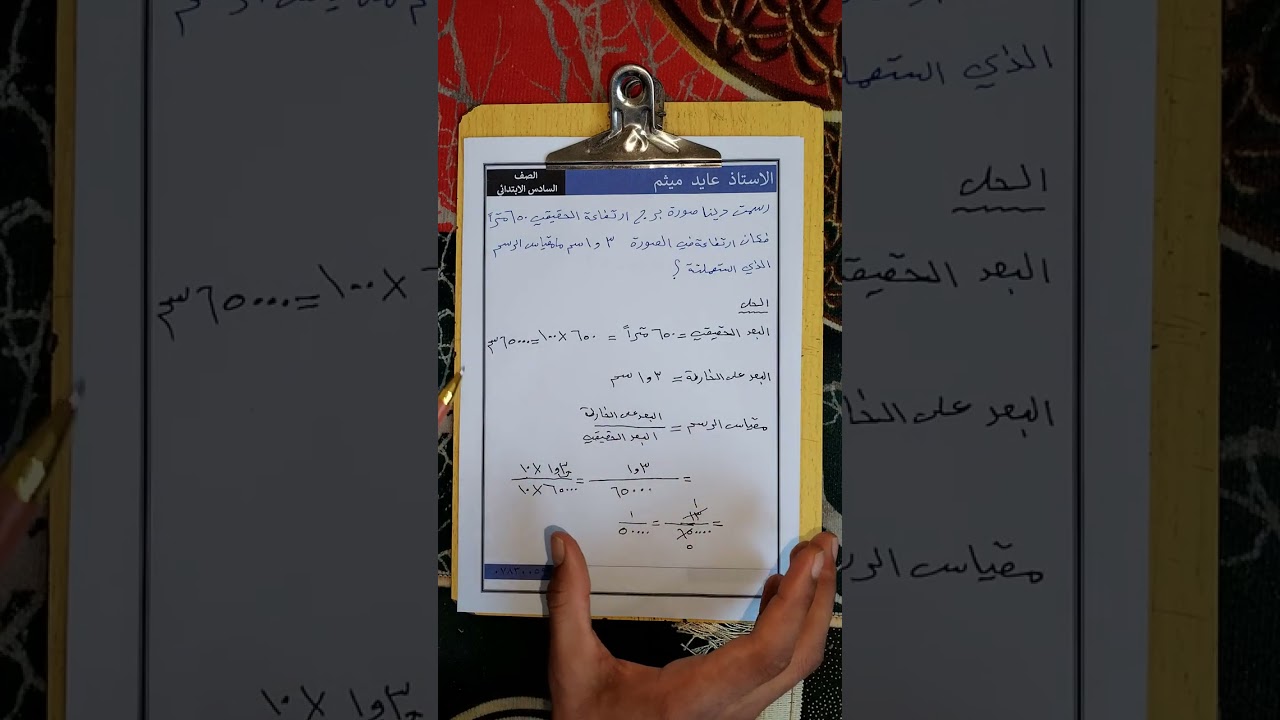 الاستاذ عايد ميثم
الصف
السادس الابتدائي
رسمت دينا صورة برج ارتفاعة الحقيقي ٦٥٠ متراً
فكان ارتفاعة في الصورة ٣ و١ سم ما مقياس الرسم
الذي استعملتة ؟
الحل
البعد الحقيقي = ٦٥٠ متراً = ٦٥٠ × ١٠٠ = ٦٥٠٠٠ سم
البعد على الخارطة = ٣ و١ سم
مقياس الرسم = البعد على الخارطة / البعد الحقيقي
= ٣ و١ / ٦٥٠٠٠ = ٣ و١ × ١٠ / ٦٥٠٠٠ × ١٠
= ١٣ / ٦٥٠٠٠٠ = ١ / ٥٠٠٠٠